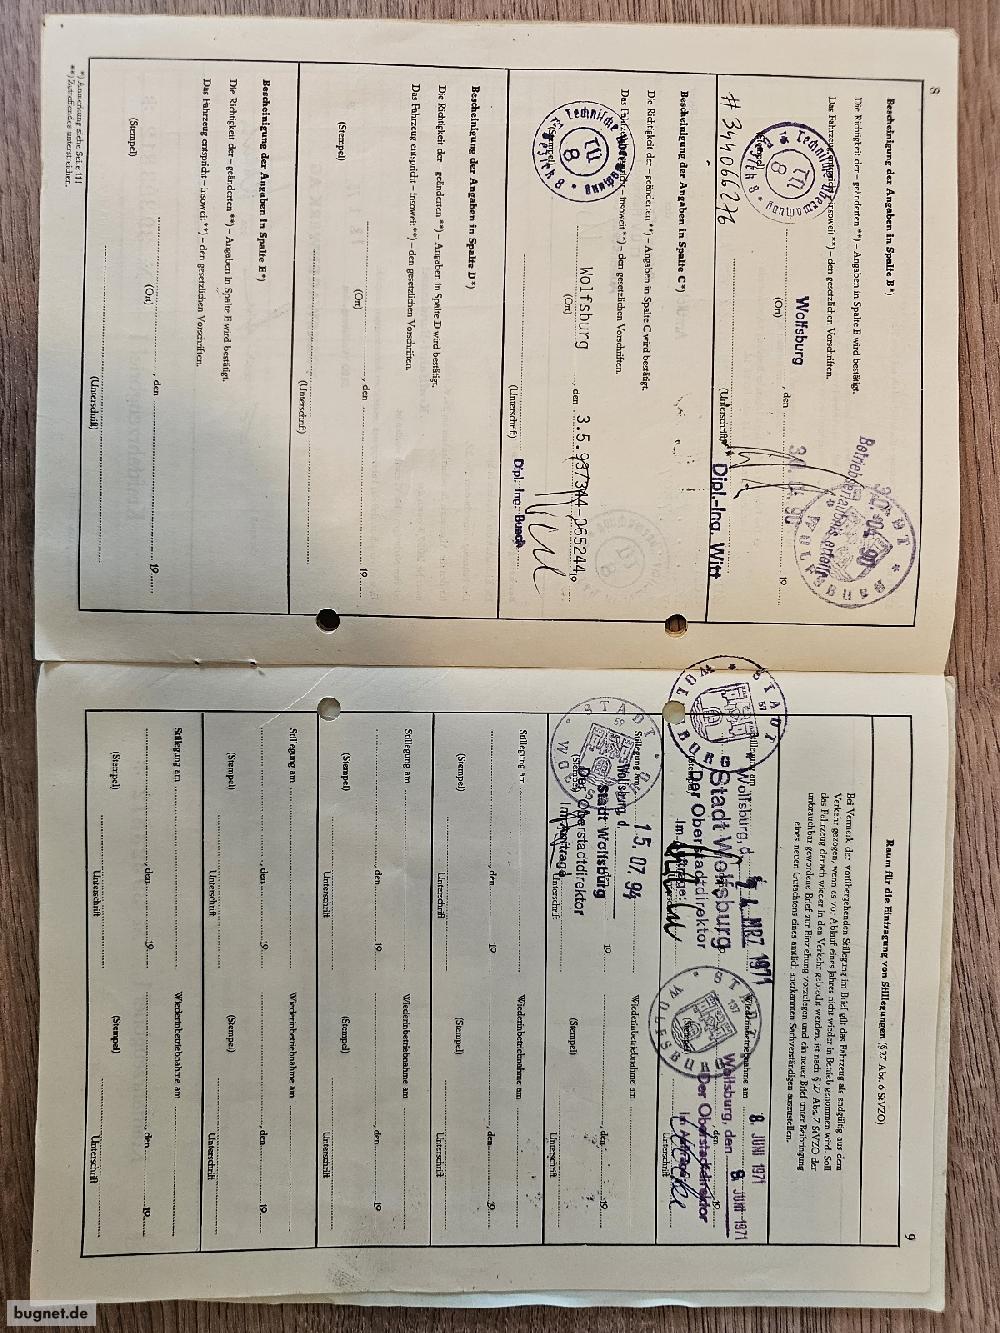 8
Bescheinigung der Angaben in Spalte B*)
Die Richtigkeit der – geänderten **) – Angaben in Spalte B wird bestätigt.
Das Fahrzeug entspricht – insoweit **) – den gesetzlichen Vorschriften.
Technische Überwachung
TÜ
8
Bezirk 8
(Stempel)
Wolfsburg
(Ort)
, den
30. 04. 90
19
# 344066276
(Unterschrift)
Dipl.-Ing. Witt
Betriebserlaubnis erteilt
STADT WOLFSBURG
Bescheinigung der Angaben in Spalte C*)
Die Richtigkeit der – geänderten **) – Angaben in Spalte C wird bestätigt.
Das Fahrzeug entspricht – insoweit **) – den gesetzlichen Vorschriften.
Technische Überwachung
TÜ
8
Bezirk 8
(Stempel)
Wolfsburg
(Ort)
, den
3.5.93/344-065244
19
(Unterschrift)
Dipl.-Ing. Busch
Bescheinigung der Angaben in Spalte D*)
Die Richtigkeit der – geänderten **) – Angaben in Spalte D wird bestätigt.
Das Fahrzeug entspricht – insoweit **) – den gesetzlichen Vorschriften.
(Stempel)
(Ort)
, den
19
(Unterschrift)
Bescheinigung der Angaben in Spalte E*)
Die Richtigkeit der – geänderten **) – Angaben in Spalte E wird bestätigt.
Das Fahrzeug entspricht – insoweit **) – den gesetzlichen Vorschriften.
(Stempel)
(Ort)
, den
19
(Unterschrift)
*) Anmerkung siehe Seite 11
**) Zutreffendes unterstreichen.
9
Raum für die Eintragung von Stillegungen (§ 27 Abs. 6 StVZO)
Bei Vermerk der vorübergehenden Stillegung im Brief gilt das Fahrzeug als endgültig aus dem
Verkehr gezogen, wenn es vor Ablauf eines Jahres nicht wieder in Betrieb genommen wird. Soll
das Fahrzeug danach wieder in den Verkehr gebracht werden, ist nach § 27 Abs. 7 StVZO der
unbrauchbar gewordene Brief zur Einziehung vorzulegen und ein neuer Brief unter Beibringung
eines neuen Gutachtens eines amtlich anerkannten Sachverständigen auszustellen.
Stillegung am
Wolfsburg, d.
MRZ 1971
Stadt Wolfsburg
Der Oberstadtdirektor
Im Auftrage:
STADT WOLFSBURG
57
Wiederinbetriebnahme am
8. JUNI 1971
Wolfsburg, den
8. JUNI 1971
Der Oberstadtdirektor
Im Auftrage
Unterschrift
STADT WOLFSBURG
137
Stillegung am
Wolfsburg, d.
15. 07. 94
Stadt Wolfsburg
Der Oberstadtdirektor
Im Auftrage
(Stempel)
Unterschrift
19
STADT
59
Wiederinbetriebnahme am
(Stempel)
, den
19
Unterschrift
Stillegung am
(Stempel)
, den
19
Unterschrift
Wiederinbetriebnahme am
(Stempel)
, den
19
Unterschrift
Stillegung am
(Stempel)
, den
19
Unterschrift
Wiederinbetriebnahme am
(Stempel)
, den
19
Unterschrift
Stillegung am
(Stempel)
, den
19
Unterschrift
Wiederinbetriebnahme am
(Stempel)
, den
19
Unterschrift
Stillegung am
(Stempel)
, den
19
Unterschrift
Wiederinbetriebnahme am
(Stempel)
, den
19
Unterschrift
bugnet.de